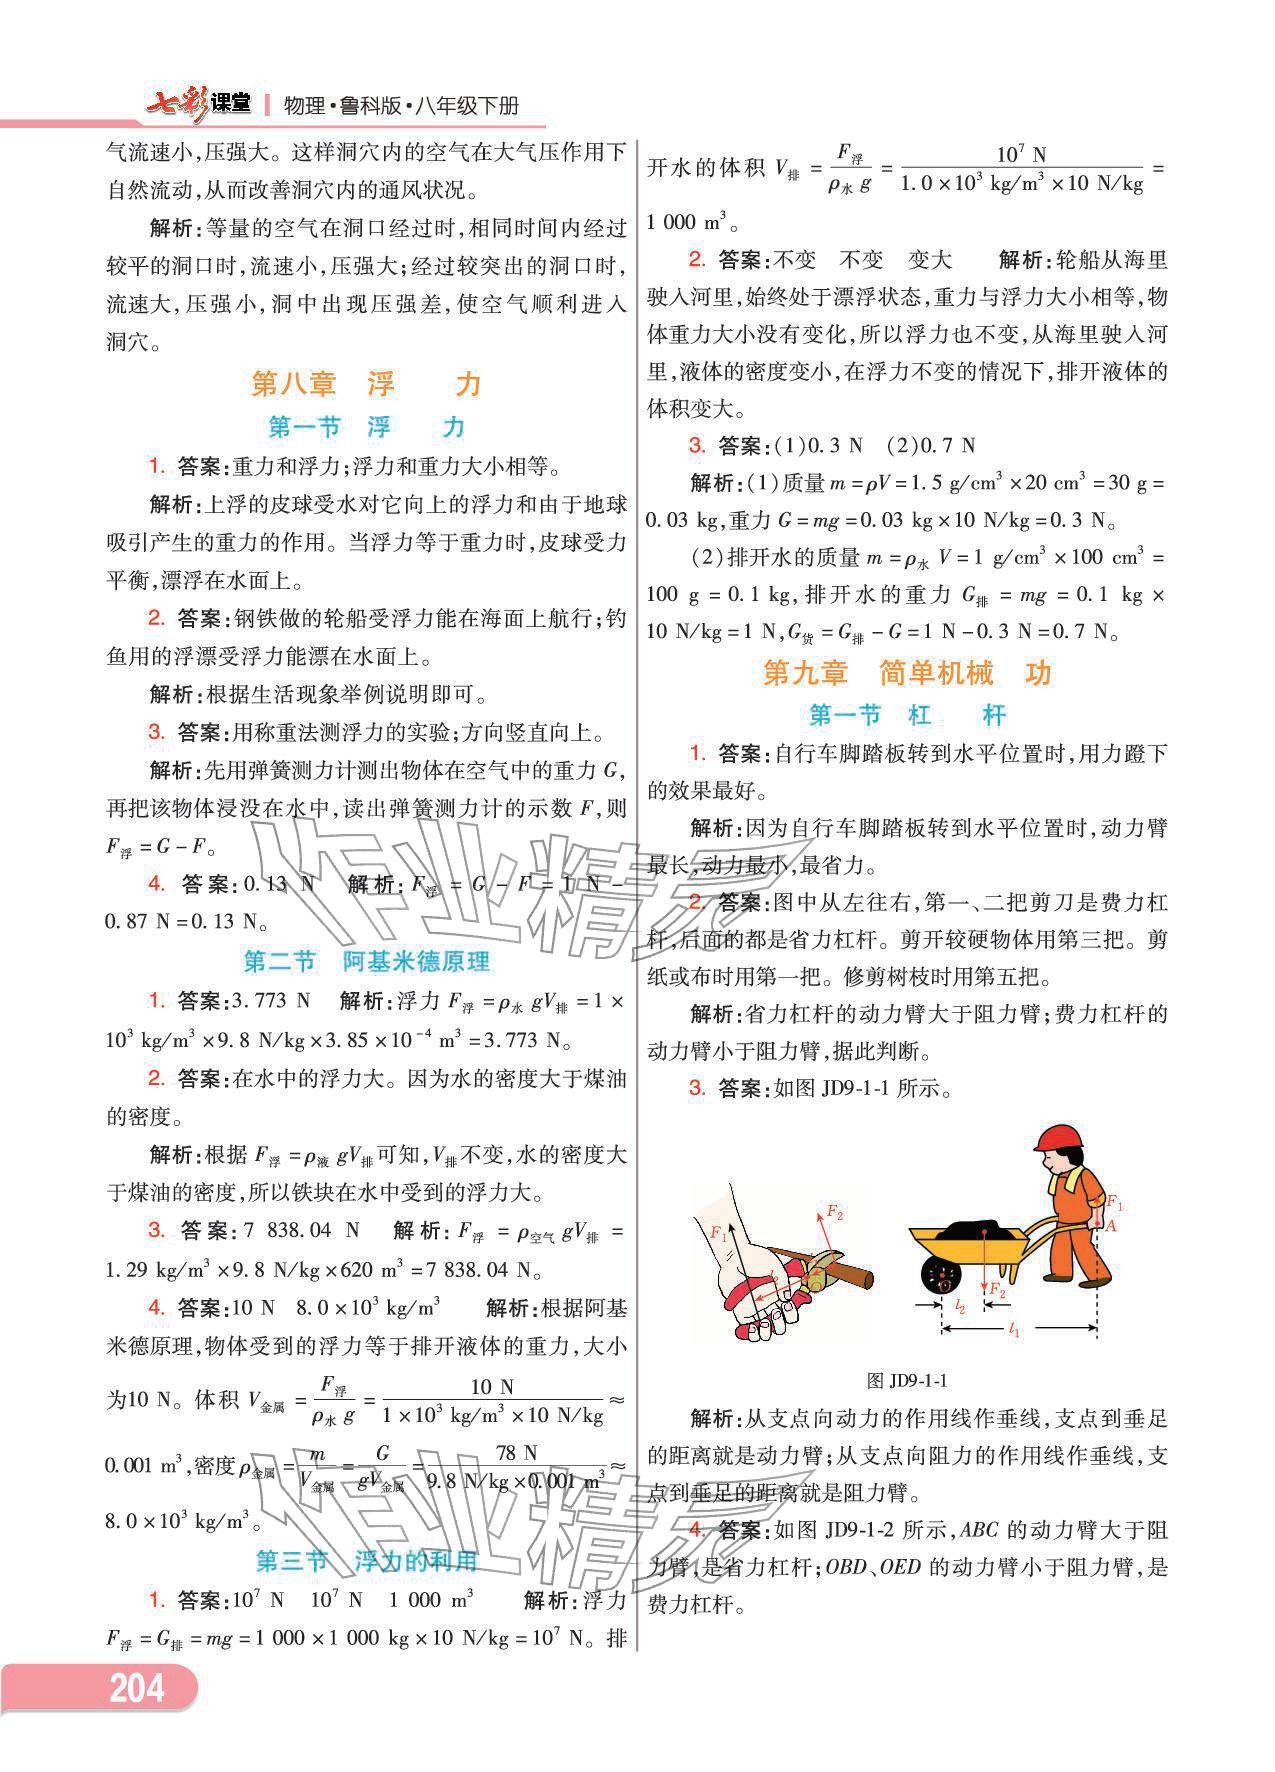 七彩课堂 物理·鲁科版·八年级下册
气流速小,压强大。这样洞穴内的空气在大气压作用下
自然流动,从而改善洞穴内的通风状况。
解析:等量的空气在洞口经过时,相同时间内经过
较平的洞口时,流速小,压强大;经过较突出的洞口时,
流速大,压强小,洞中出现压强差,使空气顺利进入
洞穴。
第八章 浮 力
第一节 浮 力
1. 答案:重力和浮力;浮力和重力大小相等。
解析:上浮的皮球受水对它向上的浮力和由于地球
吸引产生的重力的作用。当浮力等于重力时,皮球受力
平衡,漂浮在水面上。
2. 答案:钢铁做的轮船受浮力能在海面上航行;钓
鱼用的浮漂受浮力能漂在水面上。
解析:根据生活现象举例说明即可。
3. 答案:用称重法测浮力的实验;方向竖直向上。
解析:先用弹簧测力计测出物体在空气中的重力 G,
再把该物体浸没在水中,读出弹簧测力计的示数 F,则
F浮=G-F。
4. 答案:0.13 N 解析:F浮=G-F=1 N-
0.87 N=0.13 N。
第二节 阿基米德原理
1. 答案:3.773 N 解析:浮力 F浮=ρ水 gV排=1×
10³ kg/m³×9.8 N/kg×3.85×10⁻⁴ m³=3.773 N。
2. 答案:在水中的浮力大。因为水的密度大于煤油
的密度。
解析:根据 F浮=ρ液 gV排可知,V排不变,水的密度大
于煤油的密度,所以铁块在水中受到的浮力大。
3. 答案:7 838.04 N 解析:F浮=ρ空气 gV排=
1.29 kg/m³×9.8 N/kg×620 m³=7 838.04 N。
4. 答案:10 N 8.0×10³ kg/m³ 解析:根据阿基
米德原理,物体受到的浮力等于排开液体的重力,大小
为10 N。体积 V金属=F浮/ρ水 g=10 N/1×10³ kg/m³×10 N/kg≈
0.001 m³,密度 ρ金属=m/V金属=G/gV金属=78 N/9.8 N/kg×0.001 m³≈
8.0×10³ kg/m³。
第三节 浮力的利用
1. 答案:10⁷ N 10⁷ N 1 000 m³ 解析:浮力
F浮=G排=mg=1 000×1 000 kg×10 N/kg=10⁷ N。排
204
开水的体积 V排=F浮/ρ水 g=10⁷ N/1.0×10³ kg/m³×10 N/kg=
1 000 m³。
2. 答案:不变 不变 变大 解析:轮船从海里
驶入河里,始终处于漂浮状态,重力与浮力大小相等,物
体重力大小没有变化,所以浮力也不变,从海里驶入河
里,液体的密度变小,在浮力不变的情况下,排开液体的
体积变大。
3. 答案:(1)0.3 N (2)0.7 N
解析:(1)质量 m=ρV=1.5 g/cm³×20 cm³=30 g=
0.03 kg,重力 G=mg=0.03 kg×10 N/kg=0.3 N。
(2)排开水的质量 m=ρ水 V=1 g/cm³×100 cm³=
100 g=0.1 kg,排开水的重力 G排=mg=0.1 kg×
10 N/kg=1 N,G货=G排-G=1 N-0.3 N=0.7 N。
第九章 简单机械 功
第一节 杠 杆
1. 答案:自行车脚踏板转到水平位置时,用力蹬下
的效果最好。
解析:因为自行车脚踏板转到水平位置时,动力臂
最长,动力最小,最省力。
2. 答案:图中从左往右,第一、二把剪刀是费力杠
杆,后面的都是省力杠杆。剪开较硬物体用第三把。剪
纸或布时用第一把。修剪树枝时用第五把。
解析:省力杠杆的动力臂大于阻力臂;费力杠杆的
动力臂小于阻力臂,据此判断。
3. 答案:如图 JD9-1-1 所示。
F₁ F₂ l₂ O
F₁ A O F₂ l₂ l₁
图 JD9-1-1
解析:从支点向动力的作用线作垂线,支点到垂足
的距离就是动力臂;从支点向阻力的作用线作垂线,支
点到垂足的距离就是阻力臂。
4. 答案:如图 JD9-1-2 所示,ABC 的动力臂大于阻
力臂,是省力杠杆;OBD、OED 的动力臂小于阻力臂,是
费力杠杆。
作业精灵
作业精灵